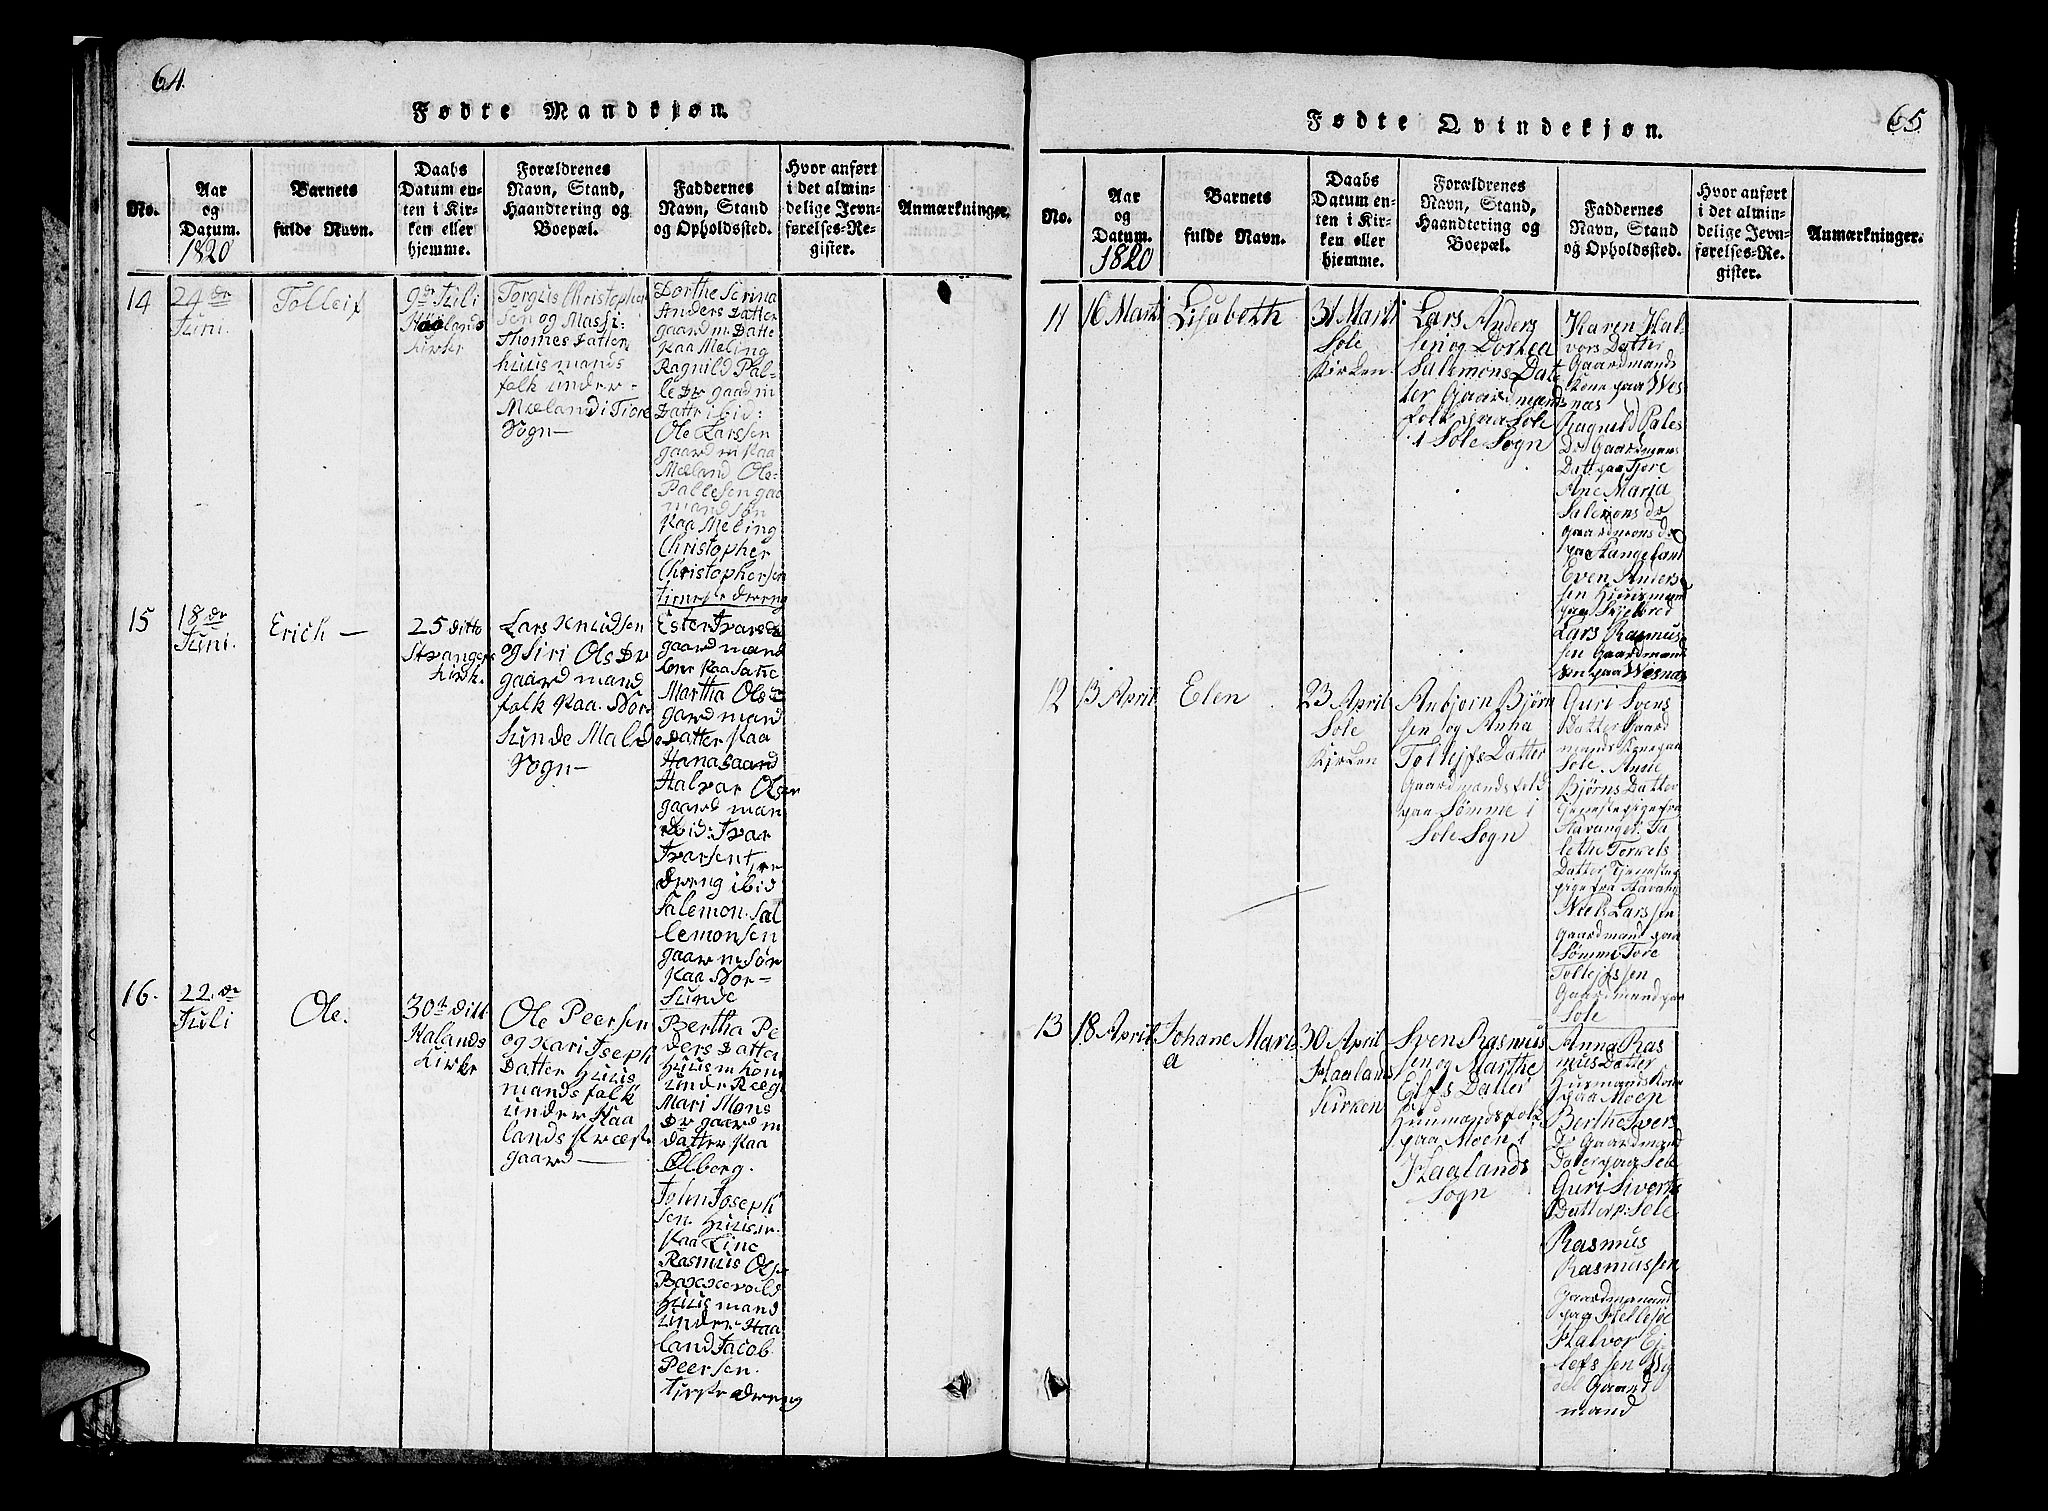 64.
Fødte Mandkjøn.
No.
Aar
og
Datum.
1820
Barnets
fulde Navn.
Daabs
Datum en-
ten i Kir-
ken eller
hjemme.
Forældrenes
Navn, Stand,
Haandtering og
Boepæl.
Faddernes
Navn, Stand
og Opholdssted.
Hvor anført
i det almin-
delige Jevn-
førelses-Re-
gister.
Anmærkninger.
14
24 de
Juni.
Tolleif
9de Juli
Haalands
Kirke
Torgus Christophe
sen og Massi
Thomes Datter
huus mands
folk under
Mæland i Tiore
Sogn
Dorthe Serina
Anders Datter
gaard m: Datte
Paa Meling
Ragnild Pal-
le Dr gaard m
Datter ibid:
Ole Larssen
gaard m Paa
Mæland Ole
Pallesen gaa
mand søn
Paa Meling
Christopher
Christophersen
tieneste dreng
15
18 de
Juni.
Erich
25 ditto
Stavanger
Kirk.
Lars Knudsen
og Siri Ols Dr
gaard mand
folk Paa Nor
sunde Malde
Sogn
Ester Ivars D
gaard mand
kone Paa
Martha Ols D
gaard mand
Datter Paa
Hanagaard
Halvar Olsen
gaard man
ibid: Ivar
Ivarsen
dreng ibid
Salemon Sal
lemonsen
gaar m Søn
Paa Nor-
sunde
16.
22 de
Juli
Ole.
30te ditt
Halands
Kirke
Ole Peersen
og Kari Joseph
Datter Huus
mandsfolk
under Haa
lands Præste
gaard
Bertha Pe
ders Datter
Huus m kone
under Ræge
Mari Mons
Dr gaard m
datter Paa
Ølberg.
John Joseph
sen Huus m
Paa Line
Rasmus Ols
Huus mand
under Haa
land Jacob
Peersen
tieneste dreng
65
Fødte Qvindekjøn.
No.
Aar
og
Datum.
1820
Barnets
fulde Navn.
Daabs
Datum en-
ten i Kir-
ken eller
hjemme.
Forældrenes
Navn, Stand,
Haandtering og
Boepæl.
Faddernes
Navn, Stand
og Opholdssted.
Hvor anført
i det almin-
delige Jevn-
førelses-Re-
gister.
Anmærkninger.
11
16 Marti
Lisabeth
31 Marti
Sole
Kirken
Lars Anders
sen og Dorthea
Salemons Dat
ter Gaardmands
folk paa Sole
i Sole Sogn
Karen Hal-
vors Datter
Gaardmands
Kone paa Wes
næs
Ragnild Pales
Dr Gaardmans
Datt paa Tjore
Ane Maria
Salemons Dr
gaardmans dr
paa Stangeland
Even Anders
sen Huusmand
paa Skjelbred
Lars Rasmus
sen Gaardmand
søn paa Wesnæs
12
13 April
Elen
23 April
Sole
Kirken
Anbjørn Bjørn
sen og Anna
Tollejfs Datter
Gaardmandsfolk
paa Sømme i
Sole Sogn
Guri Svens
Datter Gaard
mands Kone paa
Sole. Anne
Bjørns Datter
Tjenestepige fra
Stavanger. Ta
lethe Torkels
Datter Tjeneste
pige fra Stavang
Niels Larssen
Gaardmand paa
Sømme Tore
Tollejfssen
Gaardmand paa
Sole
13
18 April
Johane Mari
a
30 April
Haaland
Kirken
Sven Rasmus
sen og Marthe
Ejlfs Datter
Huusmandsfolk
paa Moen i
Haalands
Sogn
Anna Ras
mus Datter
Husmands Kone
paa Moen
Berthe Ivers
Dr Gaardmand
Dater paa Sole
Guri Siverts
Datter p. Sole
Rasmus
Rasmussen
Gaardmanand
paa Hellesøe
Halvor Ej
lefssen
Gaard
mand